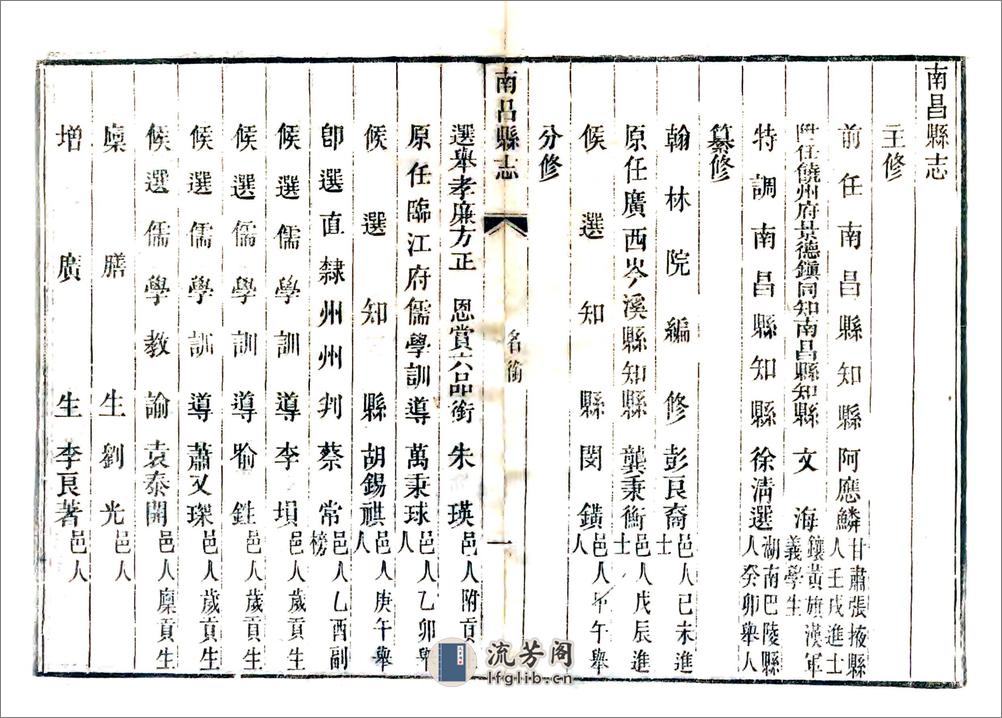 南昌縣志
主修
前任南昌縣知縣阿應鱗甘肅張掖縣人壬戌進士
陞任饒州府景德鎮同知南昌縣知縣文海鑲黃旗漢軍義學生
特調南昌縣知縣徐清選湖南巴陵縣人癸卯舉人
纂修
翰林院編修彭良裔邑人己未進士
原任廣西岑溪縣知縣龔秉衡邑人戊辰進士
候選知縣閔鐄邑人甲午舉人
分修
南昌縣志
名銜
一
選舉孝廉方正 恩賞六品銜朱瑛邑人附貢
原任臨江府儒學訓導萬秉球邑人乙卯舉人
候選知縣胡錫祺邑人庚午舉人
卽選直隸州州判蔡常邑人乙酉副榜
候選儒學訓導李塤邑人歲貢生
候選儒學訓導喻鉎邑人歲貢生
候選儒學訓導蕭又琛邑人歲貢生
候選儒學教諭袁泰開邑人廩貢生
廩膳生劉光邑人
增廣生李良著邑人
流芳阁
lfglib.cn